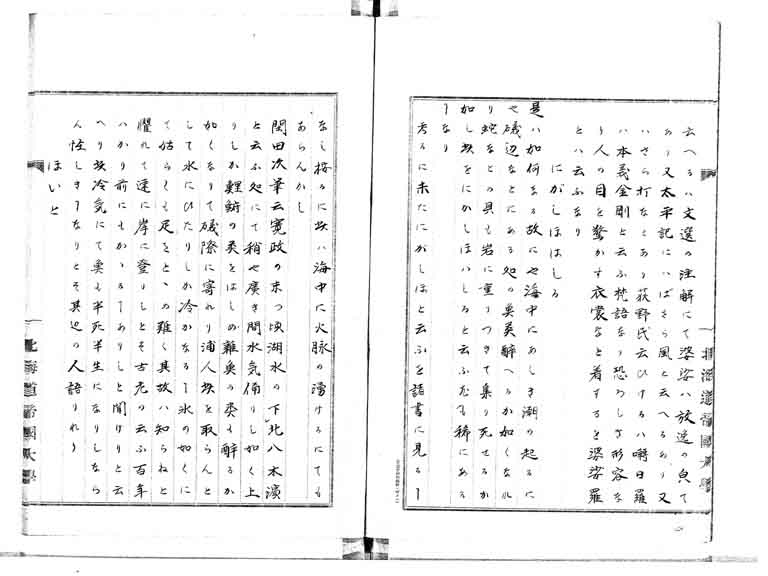 云へるハ文選の注解にて婆娑ハ放逸の皃て
あり又太平記にハばさら風と云へるあり又
ハさら打なとあり荻野氏云ひけるハ嚩日羅
ハ本義金剛と云ふ梵語なり恐ろしき形容な
り人の目を驚かす衣裳なと着するを婆娑羅
とハ云ふなり
にがしほはしる
是ハ如何なる故にや海中にあしき潮の起るに
や礒辺なとにある処の奠英醉へるか如くなル
り蛇なとの貝も岩に重りつきて集り死せるか
如し块をにかしほハしると云ふ尤も稀にある
ヿなり
考るに未たにがしほと云ふを諸書に見るヿ
なし按るに块ハ海中に火脉の湧けるにても
あらんかし
閑田次筆云寛政の末つ頃湖水の下北八木濱
と云ふ処にて稍や廣き間水気涌りし如く上
りしか鯉鮒の奠をはしめ雜奠の类も醉るか
如くなりて礒際に寄れり浦人块を取らんと
して水にひたりしか冷かなるヿ氷の如くに
て姑らくも足をとゝめ難く其故ハ知らねと
懼れて速に岸に登りしとそ古老の云ふ百年
ハかり前にもかゝるヿありしと聞けりと云
へり块冷気にて奠も半死半生になりしなら
ん怪しきヿなりとそ其辺の人語りれり
ほいと
北海道帝國大學